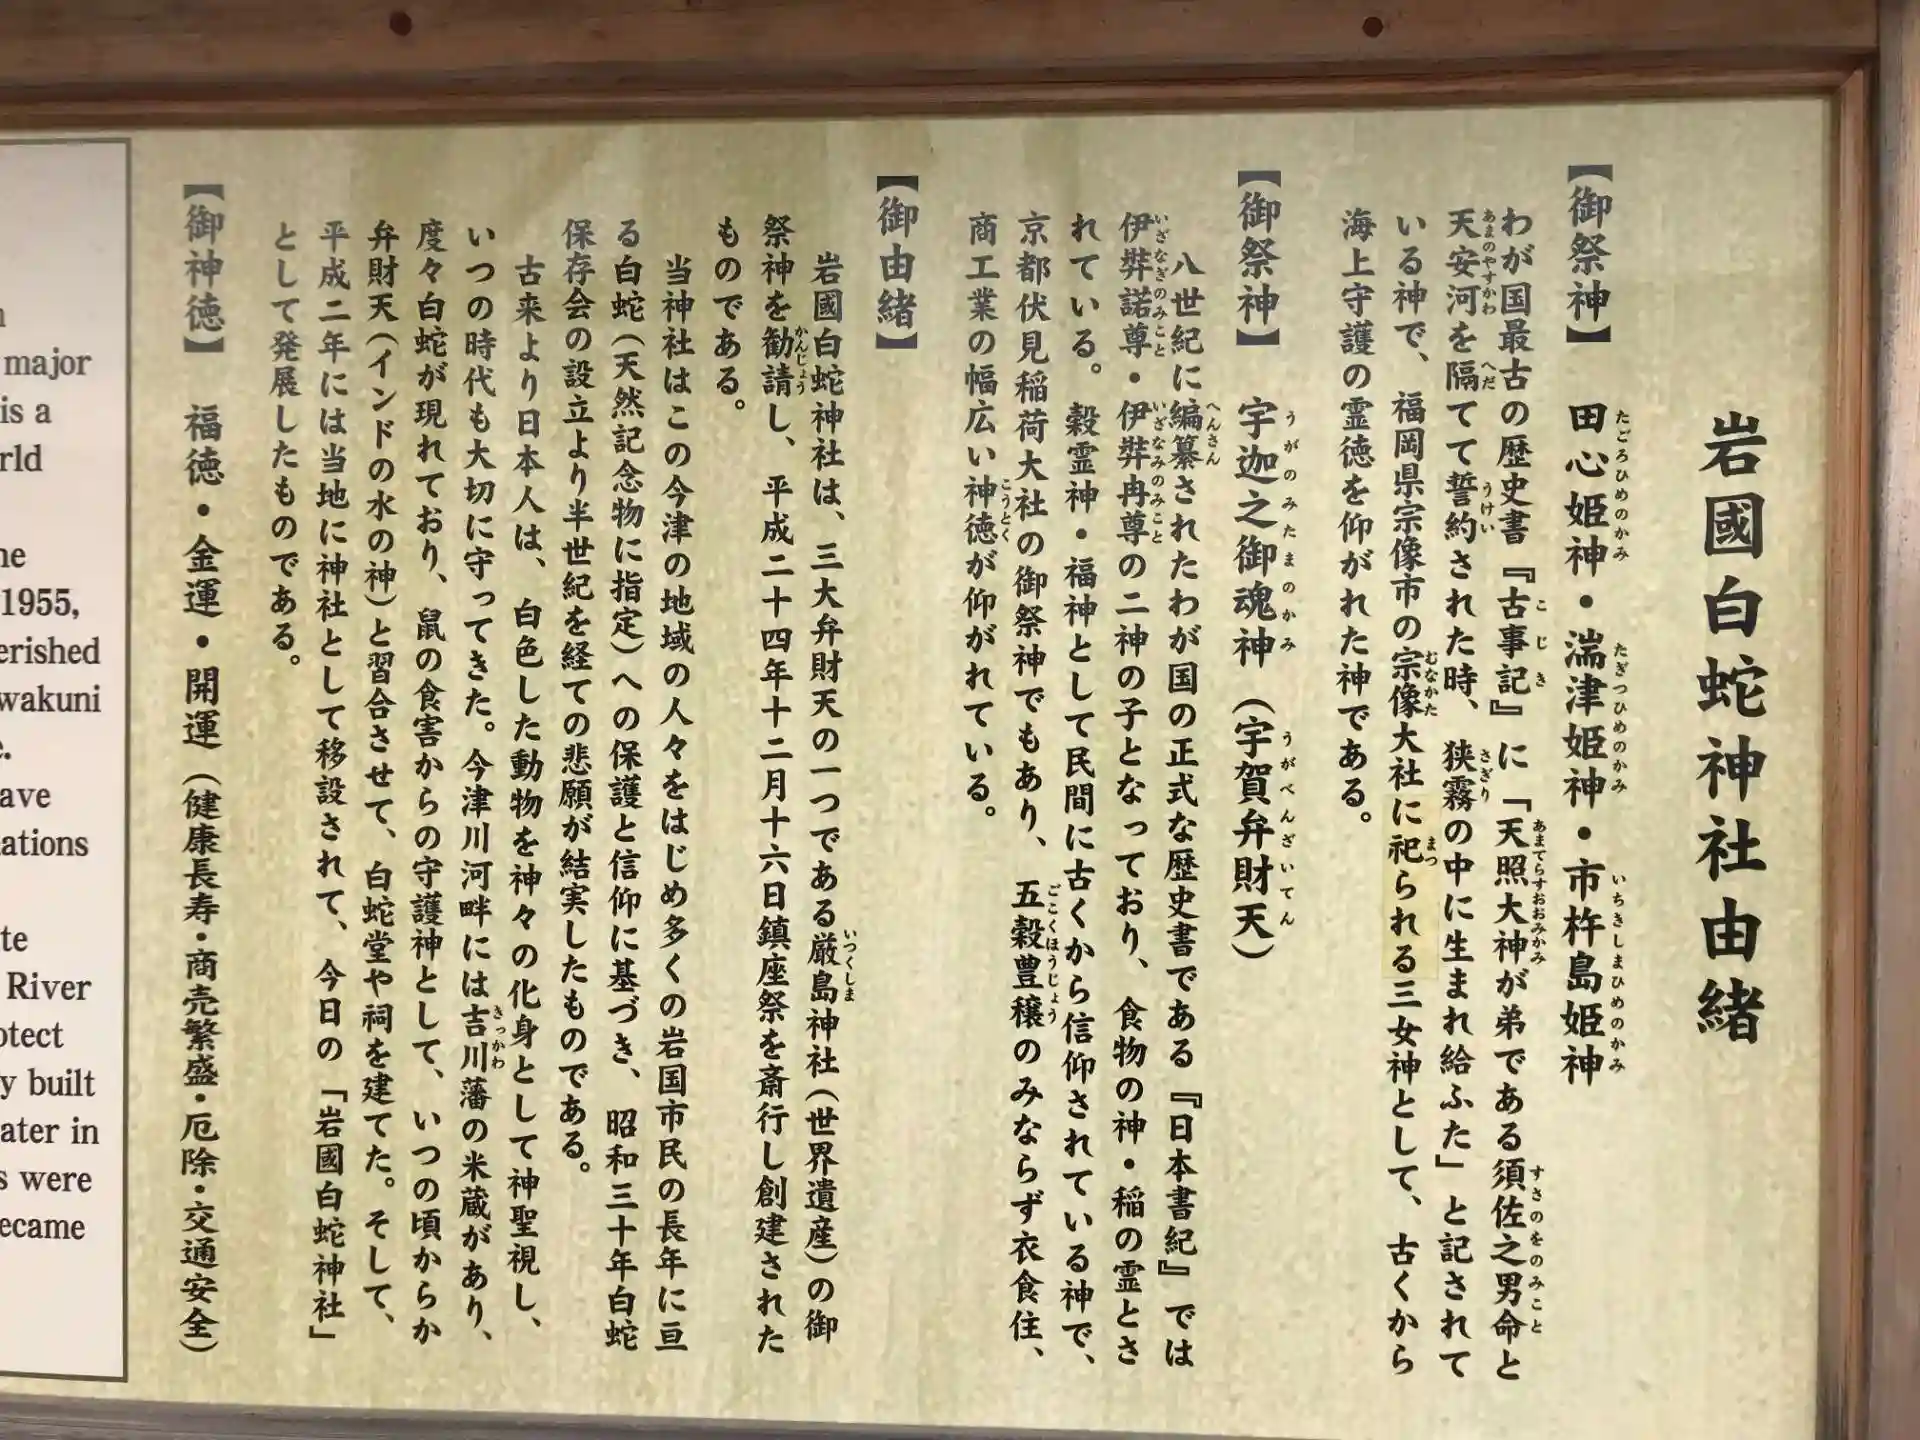 岩國白蛇神社由緒
【御祭神】 田心姫神・湍津姫神・市杵島姫神
たごろひめのかみ たぎつひめのかみ いちきしまひめのかみ
わが国最古の歴史書『古事記』に「天照大神が弟である須佐之男命と
こじき あまてらすおおみかみ すさのをのみこと
天安河を隔てて誓約された時、狭霧の中に生まれ給ふた」と記されて
あまのやすかわ へだ うけい さぎり
いる神で、福岡県宗像市の宗像大社に祀られる三女神として、古くから
むなかた まつ
海上守護の霊徳を仰がれた神である。
【御祭神】 宇迦之御魂神（宇賀弁財天）
うがのみたまのかみ うがべんざいてん
八世紀に編纂されたわが国の正式な歴史書である『日本書紀』では
へんさん
伊弉諾尊・伊弉冉尊の二神の子となっており、食物の神・稲の霊とさ
いざなぎのみこと いざなみのみこと
れている。穀霊神・福神として民間に古くから信仰されている神で、
京都伏見稲荷大社の御祭神でもあり、五穀豊穣のみならず衣食住、
ごこくほうじょう
商工業の幅広い神徳が仰がれている。
こうとく
【御由緒】
岩國白蛇神社は、三大弁財天の一つである厳島神社（世界遺産）の御
いつくしま
祭神を勧請し、平成二十四年十二月十六日鎮座祭を斎行し創建された
かんじょう
ものである。
当神社はこの今津の地域の人々をはじめ多くの岩国市民の長年に亘
る白蛇（天然記念物に指定）への保護と信仰に基づき、昭和三十年白蛇
保存会の設立より半世紀を経ての悲願が結実したものである。
古来より日本人は、白色した動物を神々の化身として神聖視し、
いつの時代も大切に守ってきた。今津川河畔には吉川藩の米蔵があり、
きっかわ
度々白蛇が現れており、鼠の食害からの守護神として、いつの頃からか
弁財天（インドの水の神）と習合させて、白蛇堂や祠を建てた。そして、
平成二年には当地に神社として移設されて、今日の「岩國白蛇神社」
として発展したものである。
【御神徳】 福徳・金運・開運（健康長寿・商売繁盛・厄除・交通安全）
major
is a
1955,
wakuni
River
built
ater in
were